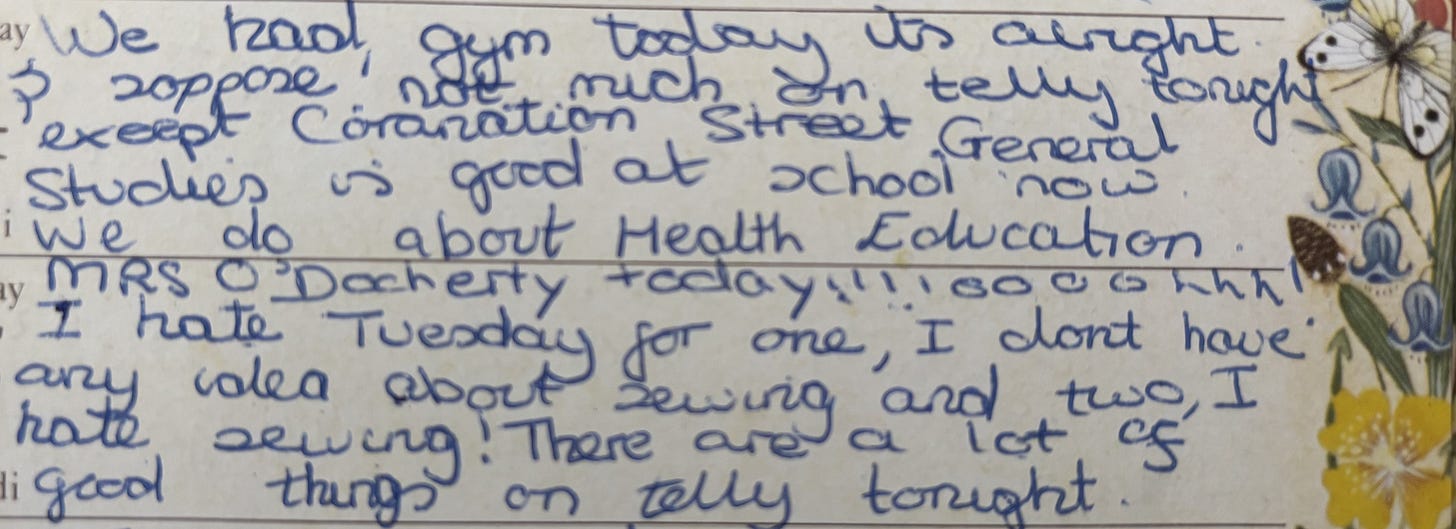 ay We had, gym today its alright.
I soppose not much on telly tonight
except Coranation Street General
Studies is good at school now.
i We do about Health Education.
ay MRS O'Docherty today!!!! ooooohhh!
I hate Tuesday for one, I dont have
any idea about sewing and two, I
hate sewing! There are a lot of
di good things on telly tonight.